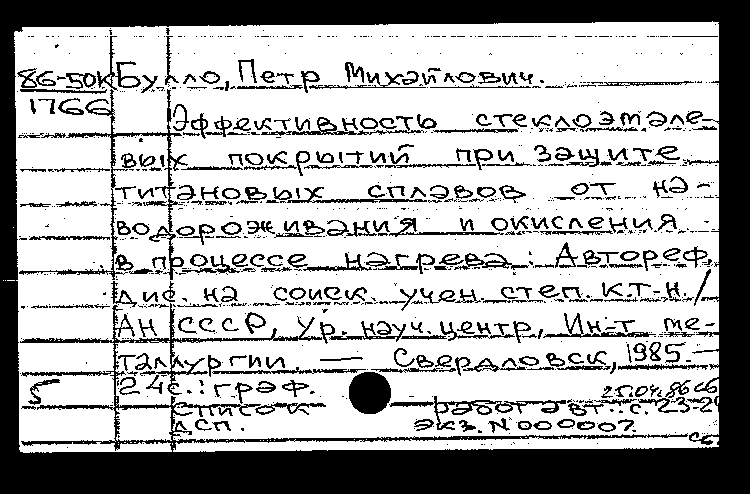 86-50к Булло, Петр Михайлович.
1766
Эффективность стеклоэмале-
вых покрытий при защите
титановых сплавов от на-
водороживания и окисления
в процессе нагрева: Автореф.
дис. на соиск. учен. степ. к.т.н./
АН СССР, Ур. науч. центр, Ин-т ме-
таллургии. — Свердловск, 1985.—
5 24с.: граф. 25.04.86 сб
Список работ авт.: с. 23-24
ДСП. Экз. N 000007.
сб.